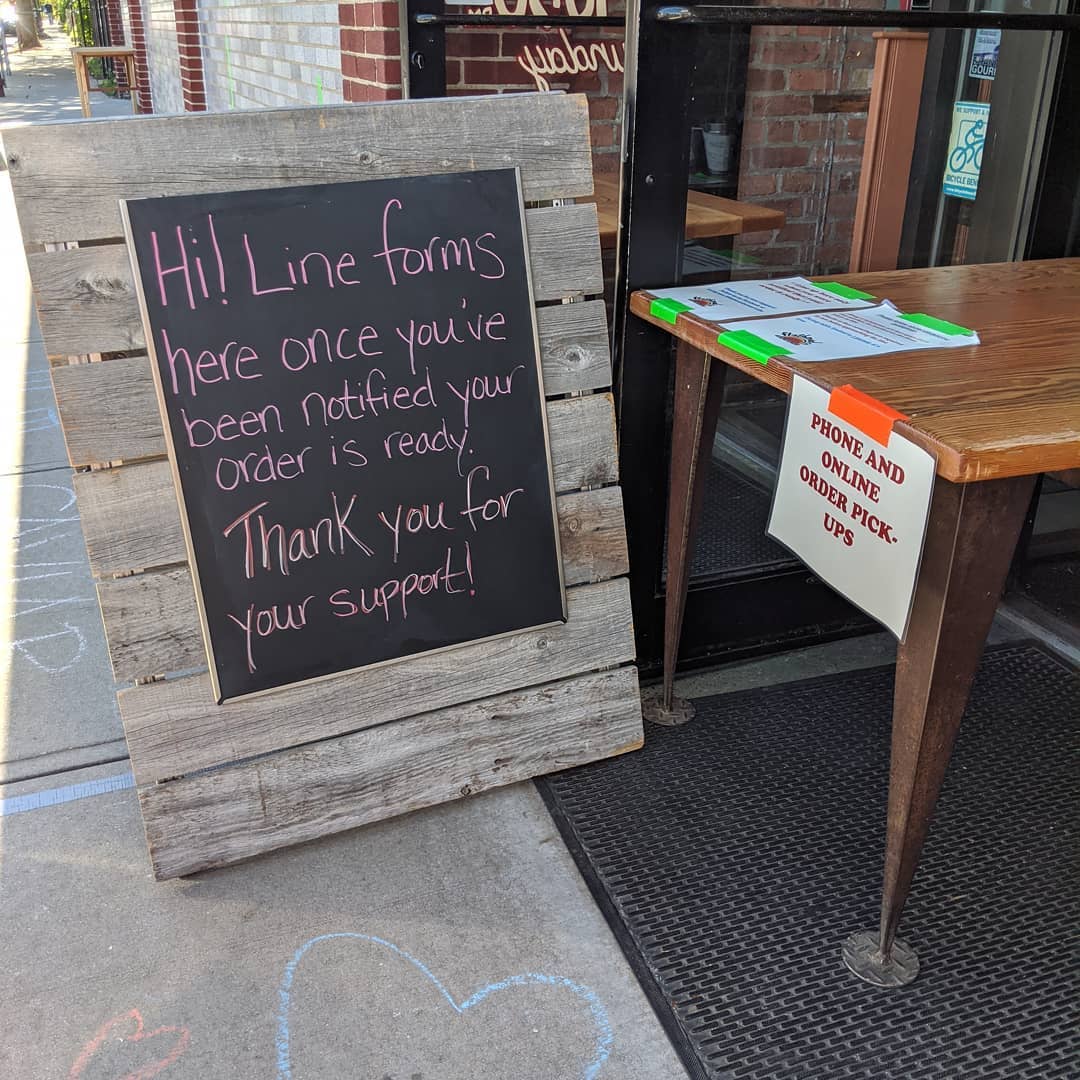 Hi! Line forms
here once you've
been notified your
order is ready.
Thank you for
your support!
PHONE AND
ONLINE
ORDER PICK-
UPS
unday
GOURM
WE SUPPORT A
BICYCLE BEN